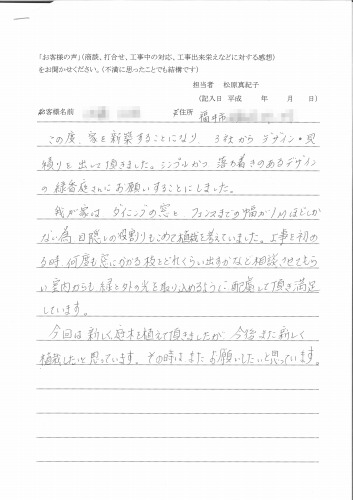 「お客様の声」(商談、打合せ、工事中の対応、工事出来栄えなどに対する感想)
をお聞かせください。(不満に思ったことでも結構です)
担当者 松原真紀子
(記入日 平成 年 月 日)
お客様名前 ご住所 福井市
この度、家を新築することになり、3社から デザイン・見
積りを出して頂きました。シンプルかつ 落ち着きのあるデザイン
の 緑香庭さんにお願いすることにしました。
我が家は ダイニングの窓と フェンスまでの幅が1mほどしか
ない為 目隠しの役割りもこめて植栽を考えていました。工事を初め
る時 何度も窓にかかる枝をどれくらい出すかなど相談させてもら
い 室内からも 緑と外の光を取り入れるように 配慮して頂き 満足
しています。
今回は 新しく庭木を植えて頂きましたが 今後また新しく
植栽したいと思っています。その時は また お願いしたいと思っています。